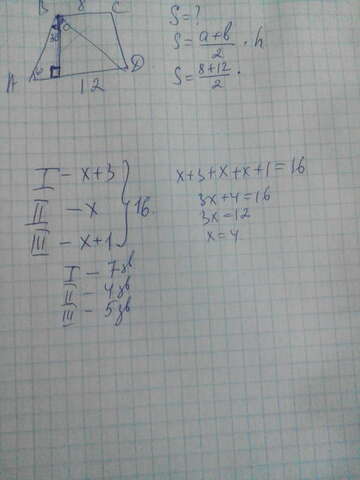 B 8 C
30
A D
12
S = ?
S = a+b/2 · h
S = 8+12/2 ·
I – x+3
II – x
III – x+1
16
x+3+x+x+1=16
3x+4=16
3x=12
x=4
I – 7зв
II – 4зв
III – 5зв